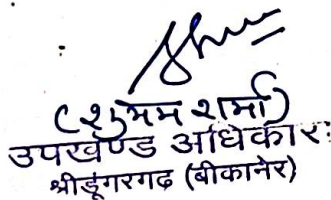 (शुभम शर्मा)
उपखण्ड अधिकारी
श्रीडूंगरगढ (बीकानेर)